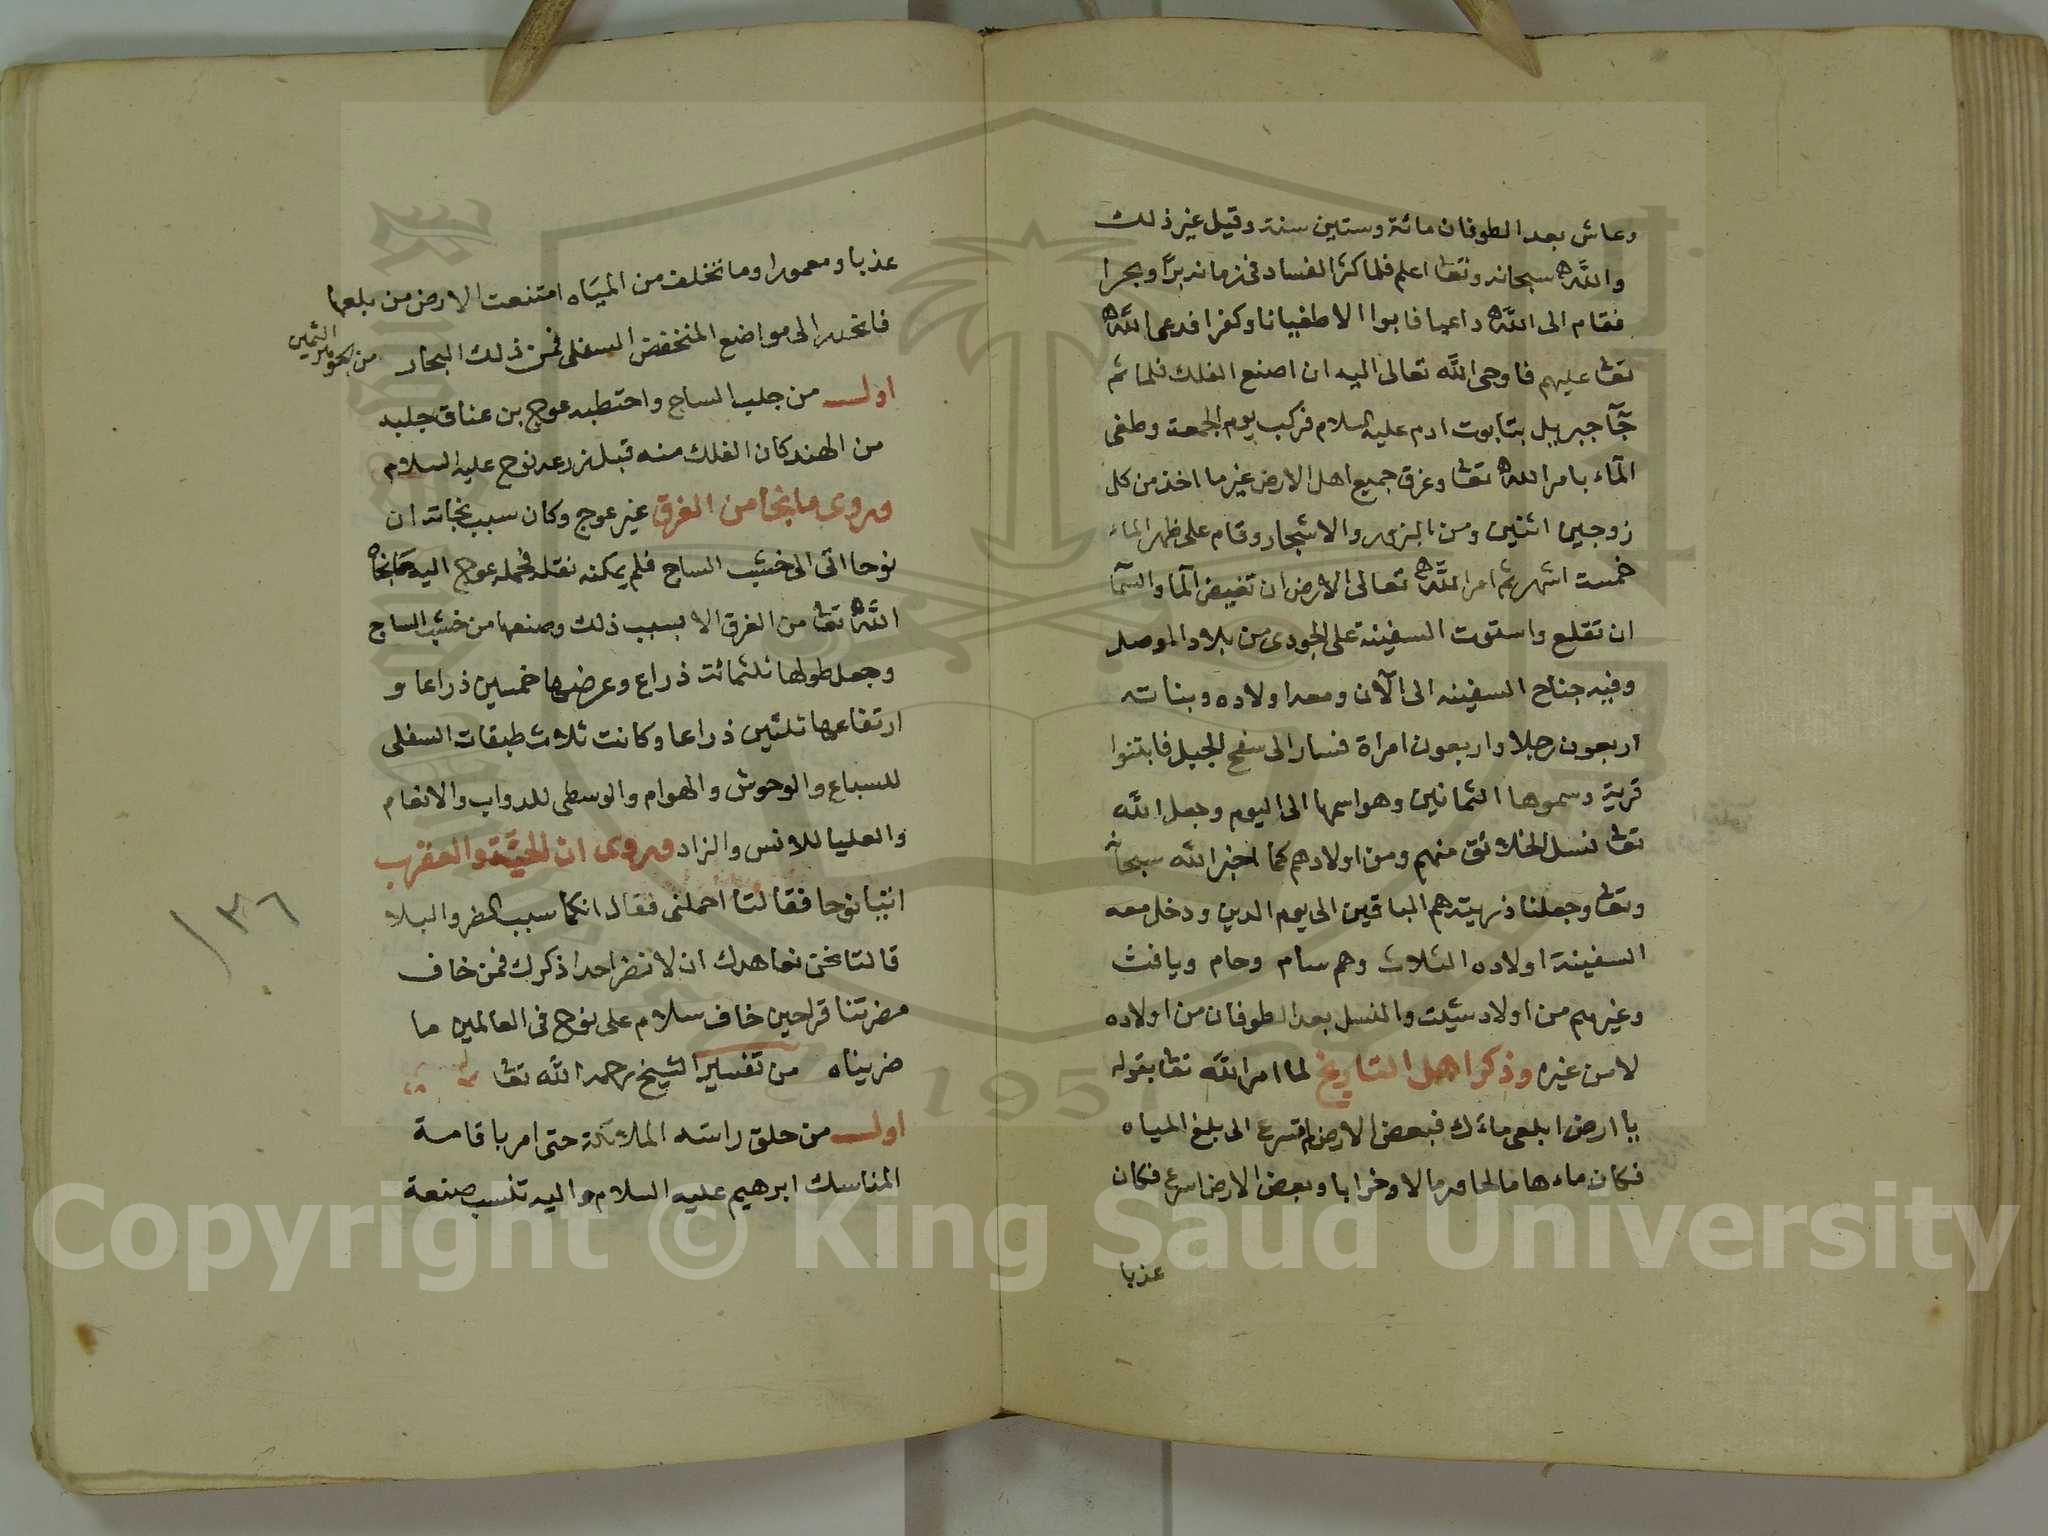 وعاش بعد الطوفان مائة وستين سنة وقيل غير ذلك
والله سبحانه وتعا اعلم فلما كثر الفساد فى زمانه برا وبحرا
فقام الى الله داعيا فابوا الا طغيانا وكفرا فدعى الله
تعا عليهم فاوحى الله تعالى اليه ان اصنع الفلك فلما تم
جآ جبريل بتابوت ادم عليه السلام فركب يوم الجمعة وطغى
المآء بامر الله تعا وغرق جميع اهل الارض غير ما اخذ من كل
زوجين اثنين ومن البزور والاشجار وقام على ظهر الماء
خمست اشهر ثم امر الله تعالى الارض ان تغيض المآ والسمآ
ان تقلع واستوت السفينة على الجودى من بلاد الموصل
وفيه جناح السفينه الى الآن ومعه اولاده وبناته
اربعون رجلا واربعون امراة فسار الى سفح الجبل فابتنوا
قرية وسموها الثمانين وهو اسمها الى اليوم وجعل الله
تعا نسل الخلائق منهم ومن اولادهم كما اخبر الله سبحانه
وتعا وجعلنا ذريته هم الباقين الى يوم الدين ودخل معه
السفينة اولاده الثلاث وهم سام وحام ويافث
وغيرهم من اولاد شيث والنسل بعد الطوفان من اولاده
لا من غيره وذكر اهل التاريخ لما امر الله تعا بقوله
يا ارض ابلعى ماءك فبعض الارض لم تسرع الى بلغ المياه
فكان ماءها مالحا ورمالا وخرابا وبعض الارض اسرع فكان
عذبا
عذبا ومعمورا وما تخلف من المياه امتنعت الارض من بلعها
فانحدر الى مواضع المنخفض السفلى فمن ذلك البحار
من الثمين
اول من جلب الساج واحتطبه عوج بن عناق جلبه
من الهند كان الفلك منه قبل زرعه نوح عليه السلام
وروى ما نجا من الغرق غير عوج وكان سبب نجاته ان
نوحا اتى الى خشب الساج فلم يمكنه نقله فحمله عوج اليه فانجاه
الله تعا من الغرق الا بسبب ذلك وصنعها من خشب الساج
وجعل طولها ثلثمائت ذراع وعرضها خمسين ذراعا و
ارتفاعها ثلثين ذراعا وكانت ثلاث طبقات السفلى
للسباع والوحوش والهوام والوسطى للدواب والانعام
والعليا للانس والزاد وروى ان الحية والعقرب
اتيا نوحا فقالتا احملنى فقال انكما سبب الضر والبلا
قالتا نحن نعاهدك ان لا نضر احدا ذكرك فمن خاف
مضرتنا قراحين خاف سلام على نوح فى العالمين ما
ضريناه من تفسير الشيخ رحمه الله تعا
اول من حلق راسه الملائكة حتى امر باقامة
المناسك ابرهيم عليه السلام واليه تنسب صنعة
١٣٦
1957
Copyright © King Saud University